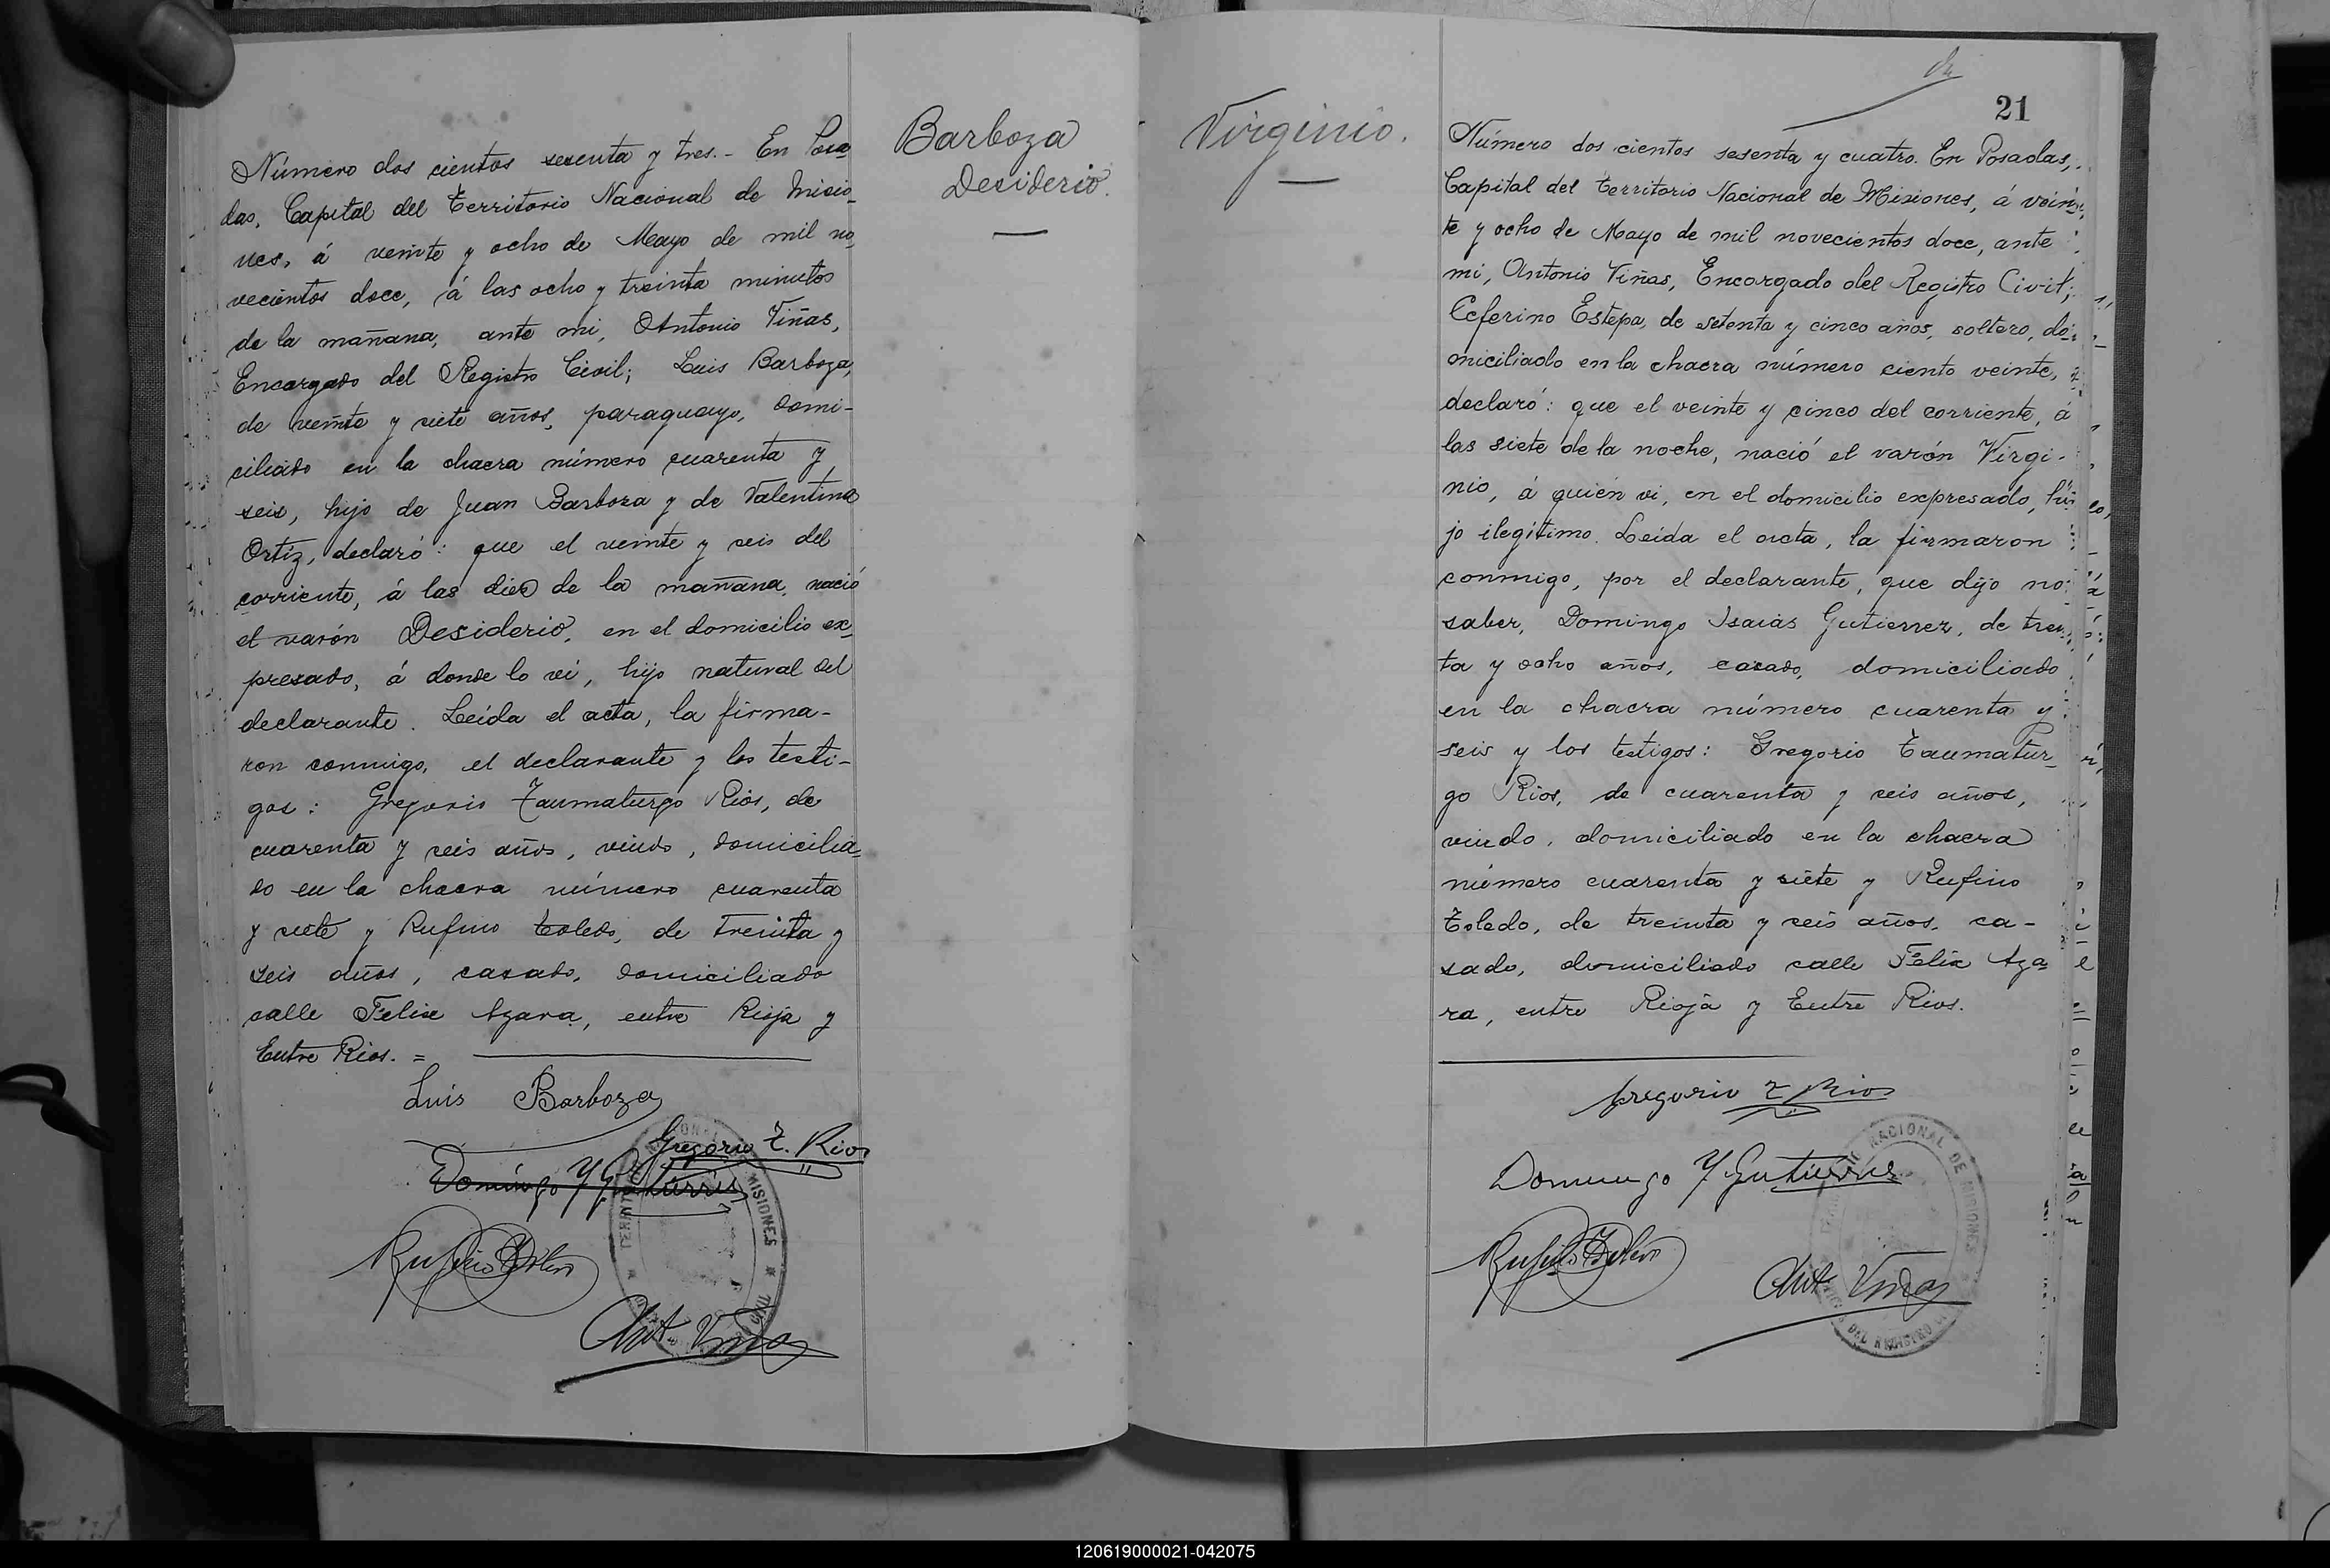 Número dos cientos sesenta y tres.- En Posa
das, Capital del Territorio Nacional de Misio-
nes, á veinte y ocho de Mayo de mil no
vecientos doce, á las ocho y treinta minutos
de la mañana, ante mi, Antonio Viñas,
Encargado del Registro Civil; Luis Barboza,
de veinte y siete años, paraguayo, domi-
ciliado en la chacra número cuarenta y
seis, hijo de Juan Barboza y de Valentina
Ortiz, declaró: que el veinte y seis del
corriente, á las diez de la mañana, nació
el varón Desiderio, en el domicilio ex-
presado, á donde lo vi, hijo natural del
declarante. Leída el acta, la firma-
ron conmigo, el declarante y los testi-
gos: Gregorio Taumaturgo Rios, de
cuarenta y seis años, viudo, domicilia-
do en la chacra número cuarenta
y siete y Rufino Toledo, de treinta y
seis años, casado, domiciliado
calle Felix Azara, entre Rioja y
Entre Rios. =
Luis Barboza
Gregorio T. Rios
Domingo Y Gutierrez
Rufino Toledo
Ant Viñas
Barboza
Desiderio.
Virginio.
21
Número dos cientos sesenta y cuatro. En Posadas,
Capital del Territorio Nacional de Misiones, á vein-
te y ocho de Mayo de mil novecientos doce, ante
mi, Antonio Viñas, Encargado del Registro Civil;
Ceferino Estepa, de setenta y cinco años, soltero, do-
miciliado en la chacra número ciento veinte,
declaró: que el veinte y cinco del corriente, á
las siete de la noche, nació el varón Virgi-
nio, á quién vi, en el domicilio expresado, hi-
jo ilegítimo. Leída el acta, la firmaron
conmigo, por el declarante, que dijo no
saber, Domingo Isaias Gutierrez, de trein
ta y ocho años, casado, domiciliado
en la chacra número cuarenta y
seis y los testigos: Gregorio Taumatur-
go Rios, de cuarenta y seis años,
viudo, domiciliado en la chacra
número cuarenta y siete y Rufino
Toledo, de treinta y seis años, ca-
sado, domiciliado calle Felix Aza-
ra, entre Rioja y Entre Rios.
Gregorio T Rios
Domingo Y Gutierrez
Rufino Toledo
Ant Viñas
NACIONAL DE MISIONES
DEL REGISTRO
120619000021-042075